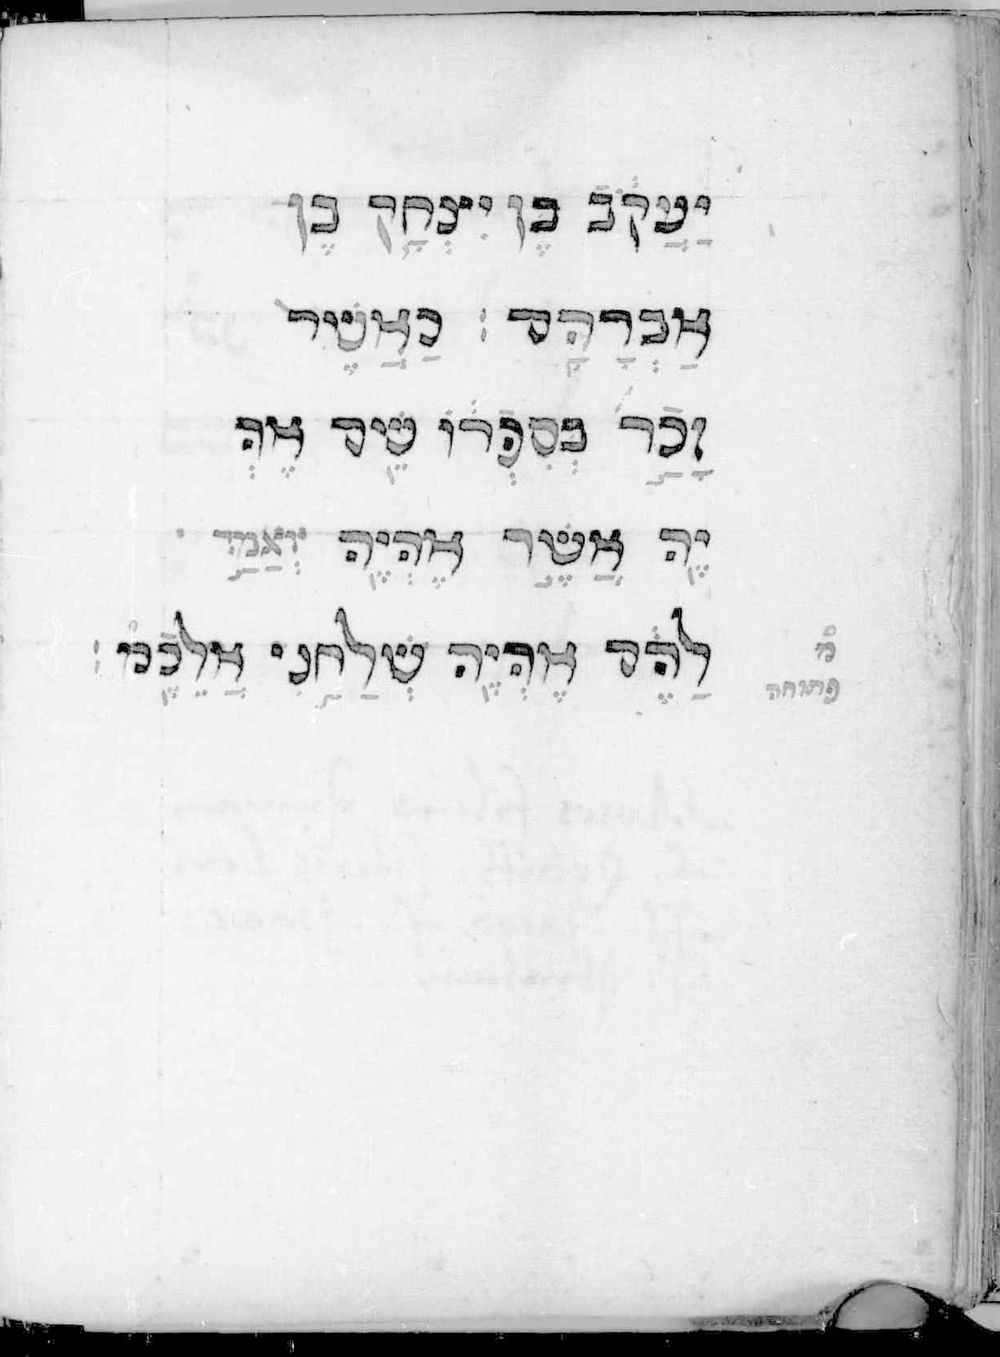 יַעֲקֹב בֶּן יִצְחָק בֶּן
אַבְרָהָם : כַּאֲשֶׁר
זָכַר בְּסִפְרוֹ שֵׁים אֶהְ
יֶה אֲשֶׁר אֶהְיֶה וְאַמַר
לַהֶם אֶהְיֶה שְׁלַחַנִי אֲלֵכֶמ :
מ
פתוחה